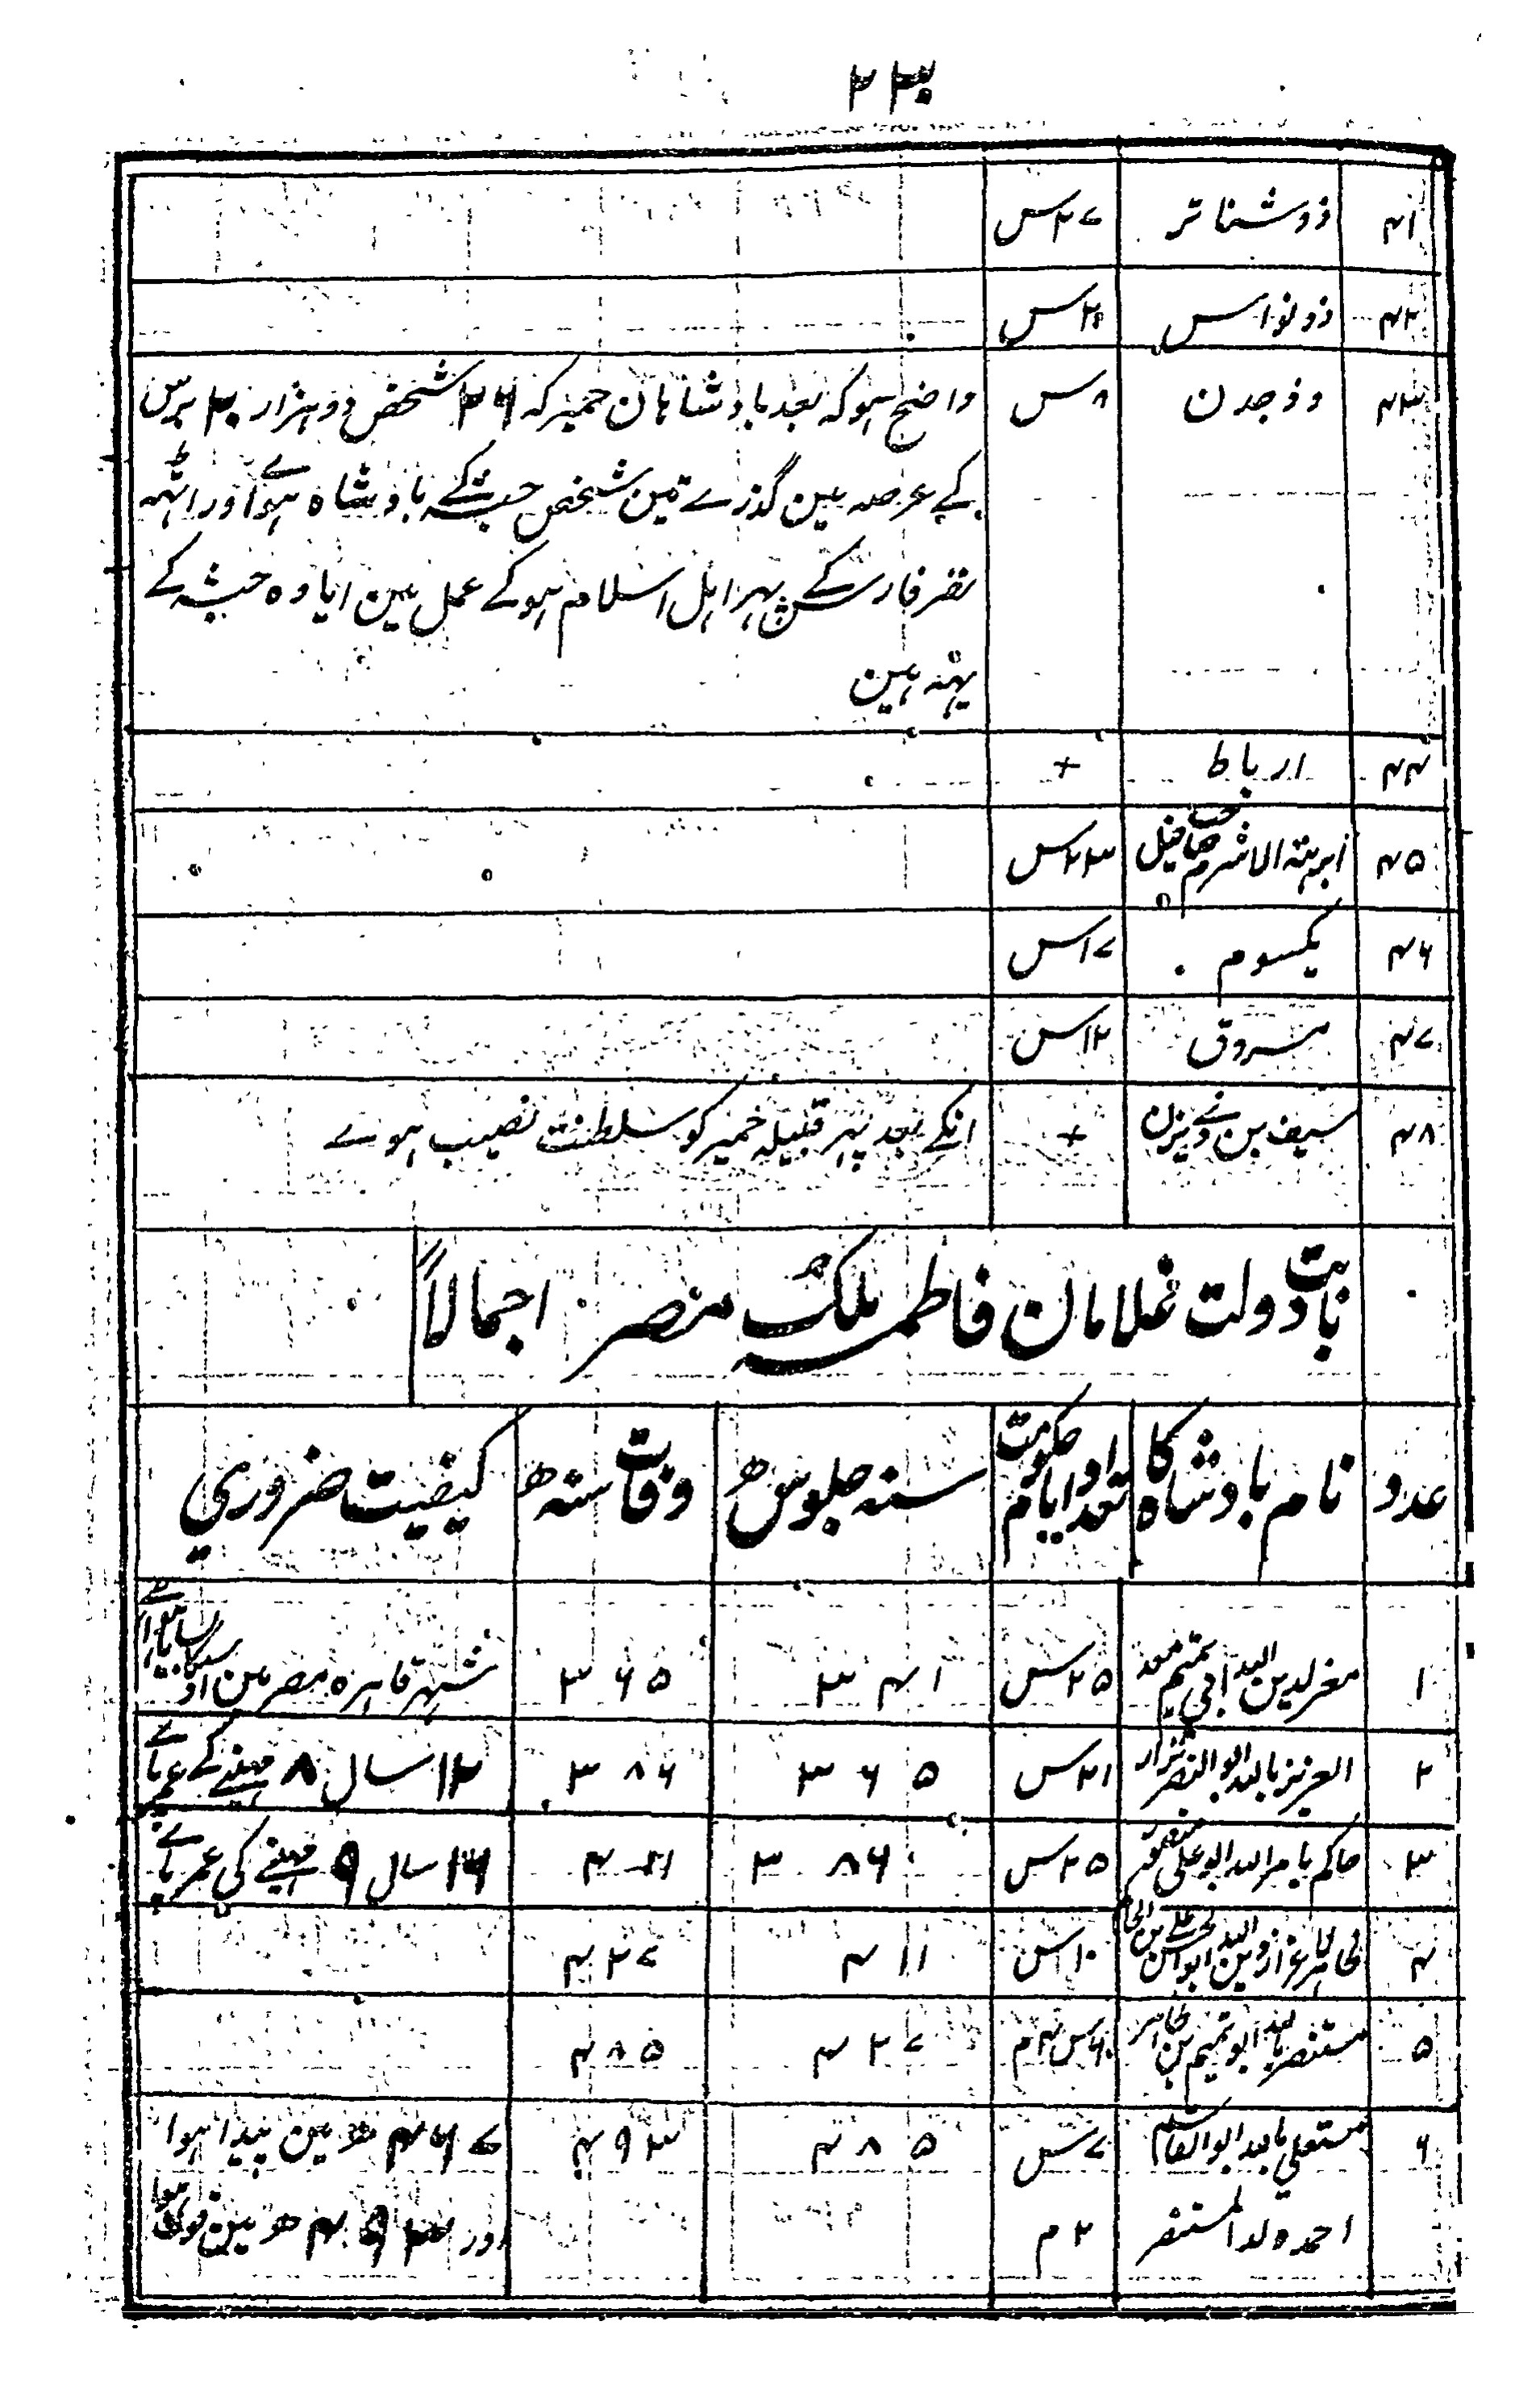 ۲۳
۴۱ ذوشناتر ۲۷س
۴۲ ذونواس ۲۰س
۴۳ ذوجدن ۸س واضح ہو کہ بعد بادشاہان حمیر کہ ۲۶ شخص دو ہزار ۲۰ برس
کے عرصہ مین گذرے تین شخص حبشہ کے بادشاہ ہوے اور اٹہہ
نفر فارس کے پہر اہل اسلام ہو کے عمل مین ایا وہ حبشہ کے
یہہ ہین
۴۴ ارباط +
۴۵ ابرہتہ الاشرم صاحب فیل ۲۳س
۴۶ یکسوم ۱۷س
۴۷ مسروق ۱۲س
۴۸ سیف بن ذی یزن + انکے بعد پہر قبیلہ حمیر کو سلطنت نصیب ہوے
بابت دولت غلامان فاطمہ ملک مصر اجمالاً
عدد نام بادشاہ کا تعداد ایام حکومت سنہ جلوس ھ وفات سنہ ھ کیفیت ضروری
۱ معزلدین اللہ ابی تمیم معد ۲۵س ۳۴۱ ۳۶۵ شہر قاہرہ مصر مین
۲ العزیز باللہ ابو النصر نزار ۲۱س ۳۶۵ ۳۸۶ ۱۲ سال ۸ مہینے کے عمر پاے
۳ حاکم بامراللہ ابو علی منصور ۲۵س ۳۸۶ ۴۱۱ ۱۶ سال ۹ مہینے کی عمر پاے
۴ ابوالحسن علی بن الحاکم ۱۰س ۴۱۱ ۴۲۷
۵ مستنصر باللہ ابو تمیم بن طاہر ۶۰س ۴م ۴۲۷ ۴۸۵
۶ مستعلی باللہ ابوالقاسم ۷س ۴۸۵ ۴۹۳ ۴۶۷ ھ مین پیدا ہوا
احمد ولد المستنصر ۲م اور ۴۹۳ ھ مین فوت ہوا